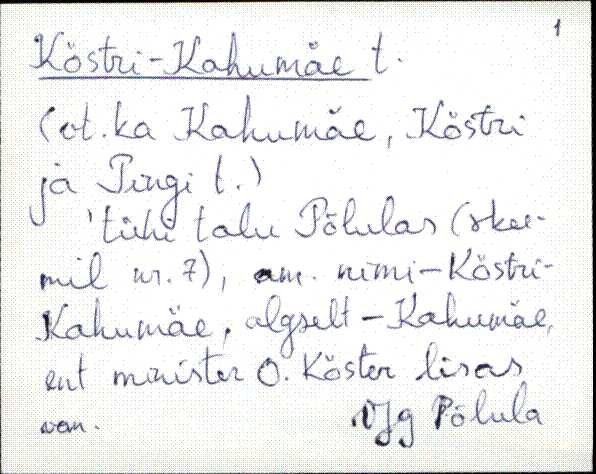 1
Köstri-Kahumäe t.
(vt. ka Kahumäe, Köstri
ja Pingi t.)
'tühi talu Põlulas (skee-
mil nr. 7), am. nimi-Köstri-
Kahumäe, algselt - Kahumäe,
ent minister O. Köster lisas
VJg Põlula